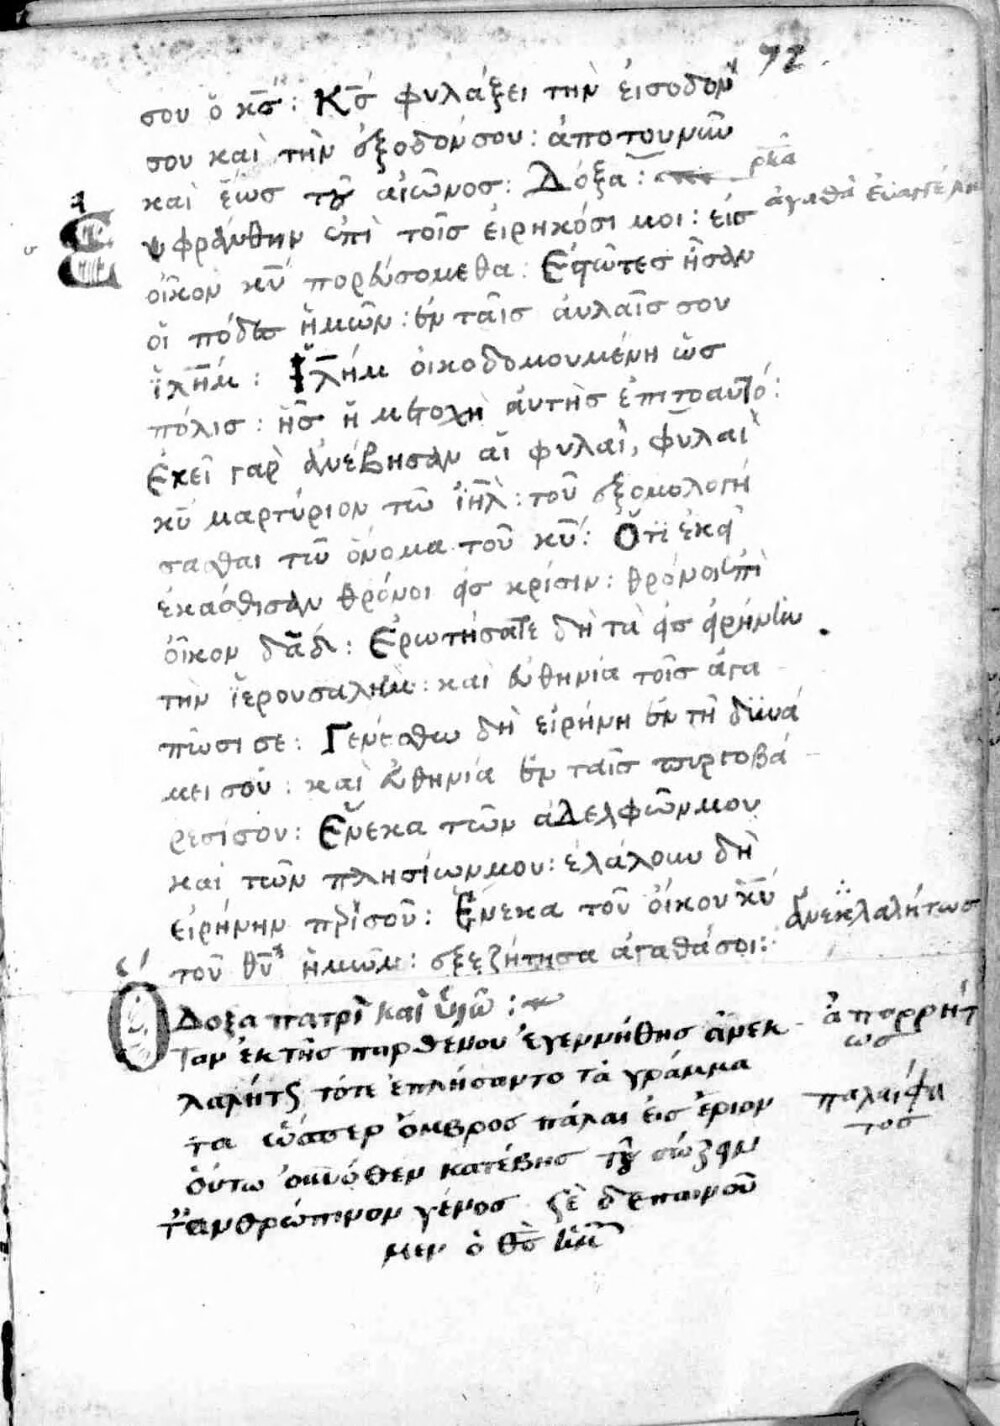 72
σου ὁ κς̄: Κς̄ φυλάξει τὴν εἴσοδόν
σου καὶ τὴν ἔξοδόν σου: ἀπὸ τοῦ νῦν
καὶ ἕως τοῦ αἰῶνος: Δόξα: ρκᾱ
Εὐφράνθην ἐπὶ τοῖς εἰρηκόσι μοι: εἰς
οἶκον κῡ πορευσόμεθα: Ἑστῶτες ἦσαν
οἱ πόδες ἡμῶν: ἐν ταῖς αὐλαῖς σου
ἰλῆμ: Ἰλῆμ οἰκοδομουμένη ὡς
πόλις: ἧς ἡ μετοχὴ αὐτῆς ἐπιτοαυτό:
Ἐκεῖ γὰρ ἀνέβησαν αἱ φυλαὶ, φυλαὶ
κῡ μαρτύριον τῶ ἰηλ: τοῦ ἐξομολογή
σασθαι τῶ ὀνόμα τοῦ κῡ: Ὅτι ἐκεῖ
ἐκάθισαν θρόνοι εἰς κρίσιν: θρόνοι ἐπὶ
οἶκον δᾱδ: Ἐρωτήσατε δὴ τὰ εἰς εἰρήνην
τὴν ἱερουσαλὴμ: καὶ εὐθηνία τοῖς ἀγα
πῶσι σε: Γενέσθω δὴ εἰρήνη ἐν τῆ δυνά
μει σου: καὶ εὐθηνία ἐν ταῖς πυργοβά
ρεσί σου: Ἕνεκα τῶν ἀδελφῶν μου
καὶ τῶν πλησίων μου: ἐλάλουν δὴ
εἰρήνην πρὶ σοῦ: Ἕνεκα τοῦ οἴκου κῡ ἀνεκλαλήτως
τοῦ θῡ ἡμῶν: ἐξεζήτησα ἀγαθά σοι:
Δόξα πατρὶ καὶ υἱῶ: ἀπορρήτ
Ὅταν ἐκ τῆς παρθένου ἐγεννήθης ἀνεκ ως
λαλήτς τότε ἐπλήσαντο τὰ γράμμα παλαίφα
τα ὥσπερ ὄμβρος πάλαι εἰς ἔριον τος
οὕτω κατέβης τοῦ σώζειν
τ ἀνθρώπινον γένος σὲ ἐπαινοῦ
μεν ὁ θς̄ ἡμ